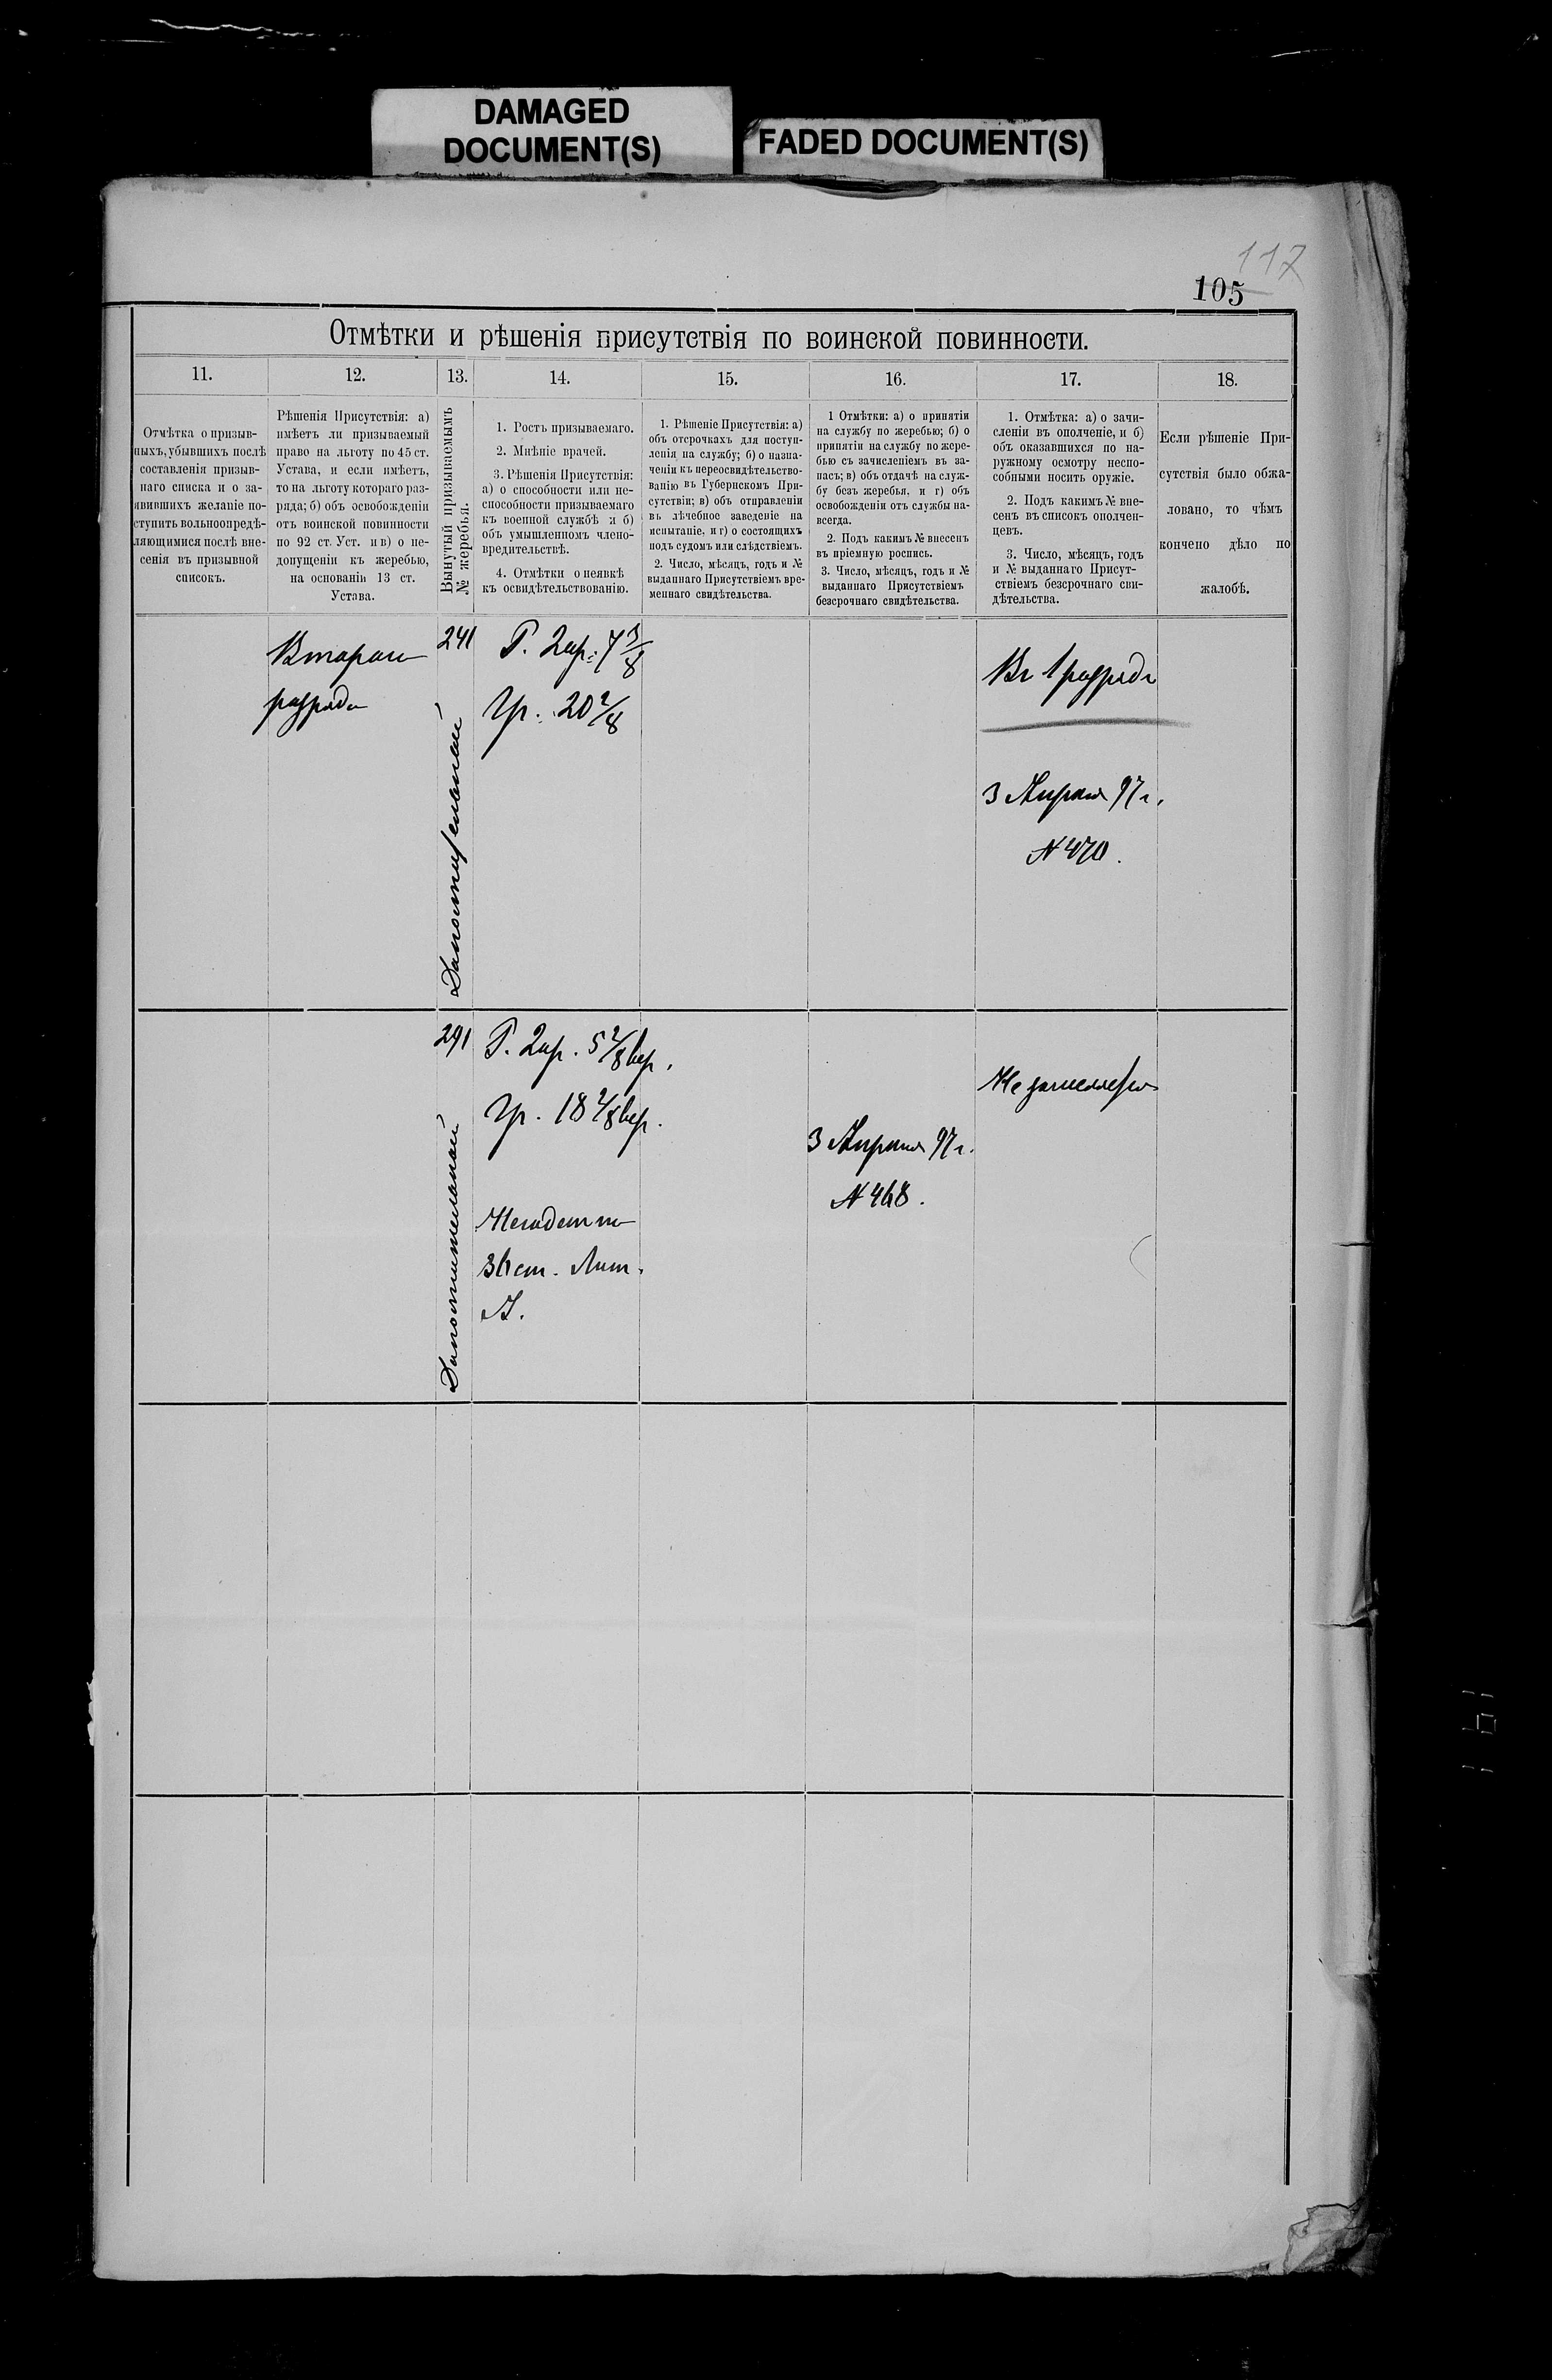 DAMAGED
DOCUMENT(S)
FADED DOCUMENT(S)
117
105
Отмѣтки и рѣшенія присутствія по воинской повинности.
11.
12.
13.
14.
15.
16.
17.
18.
Отмѣтка о призыв-
ныхъ, убывшихъ послѣ
составленія призыв-
наго списка и о за-
явившихъ желаніе по-
ступить вольноопредѣ-
ляющимися послѣ вне-
сенія въ призывной
списокъ.
Рѣшенія Присутствія: а)
имѣетъ ли призываемый
право на льготу по 45 ст.
Устава, и если имѣетъ,
то на льготу котораго раз-
ряда; б) объ освобожденіи
отъ воинской повинности
по 92 ст. Уст. и в) о не-
допущеніи къ жеребью,
на основаніи 13 ст.
Устава.
Вынутый призываемымъ
№ жеребья.
1. Ростъ призываемаго.
2. Мнѣніе врачей.
3. Рѣшенія Присутствія:
а) о способности или не-
способности призываемаго
къ военной службѣ и б)
объ умышленномъ члено-
вредительствѣ.
4. Отмѣтки о неявкѣ
къ освидѣтельствованію.
1. Рѣшеніе Присутствія: а)
объ отсрочкахъ для поступ-
ленія на службу; б) о назна-
ченіи къ переосвидѣтельство-
ванію въ Губернскомъ При-
сутствіи; в) объ отправленіи
въ лѣчебное заведеніе на
испытаніе, и г) о состоящихъ
подъ судомъ или слѣдствіемъ.
2. Число, мѣсяцъ, годъ и №
выданнаго Присутствіемъ вре-
меннаго свидѣтельства.
1 Отмѣтки: а) о принятіи
на службу по жеребью; б) о
принятіи на службу по жере-
бью съ зачисленіемъ въ за-
пасъ; в) объ отдачѣ на служ-
бу безъ жеребья, и г) объ
освобожденіи отъ службы на-
всегда.
2. Подъ какимъ № внесенъ
въ пріемную роспись.
3. Число, мѣсяцъ, годъ и №
выданнаго Присутствіемъ
безсрочнаго свидѣтельства.
1. Отмѣтка: а) о зачи-
сленіи въ ополченіе, и б)
объ оказавшихся по на-
ружному осмотру неспо-
собными носить оружіе.
2. Подъ какимъ № вне-
сенъ въ списокъ ополчен-
цевъ.
3. Число, мѣсяцъ, годъ
и № выданнаго Присут-
ствіемъ безсрочнаго сви-
дѣтельства.
Если рѣшеніе При-
сутствія было обжа-
ловано, то чѣмъ
кончено дѣло по
жалобѣ.
Втораго
разряда
241
Дополнительный
Р. 2 ар. 7 3/8
Гр. 20 2/8
Въ 1 разрядъ
3 Апрѣля 97 г.
N 470.
291
Дополнительный
Р. 2 ар. 5 2/8 вер.
Гр. 18 2/8 вер.
36 ст. Лит.
А.
3 Апрѣля 97 г.
N 468.
Не зачислять